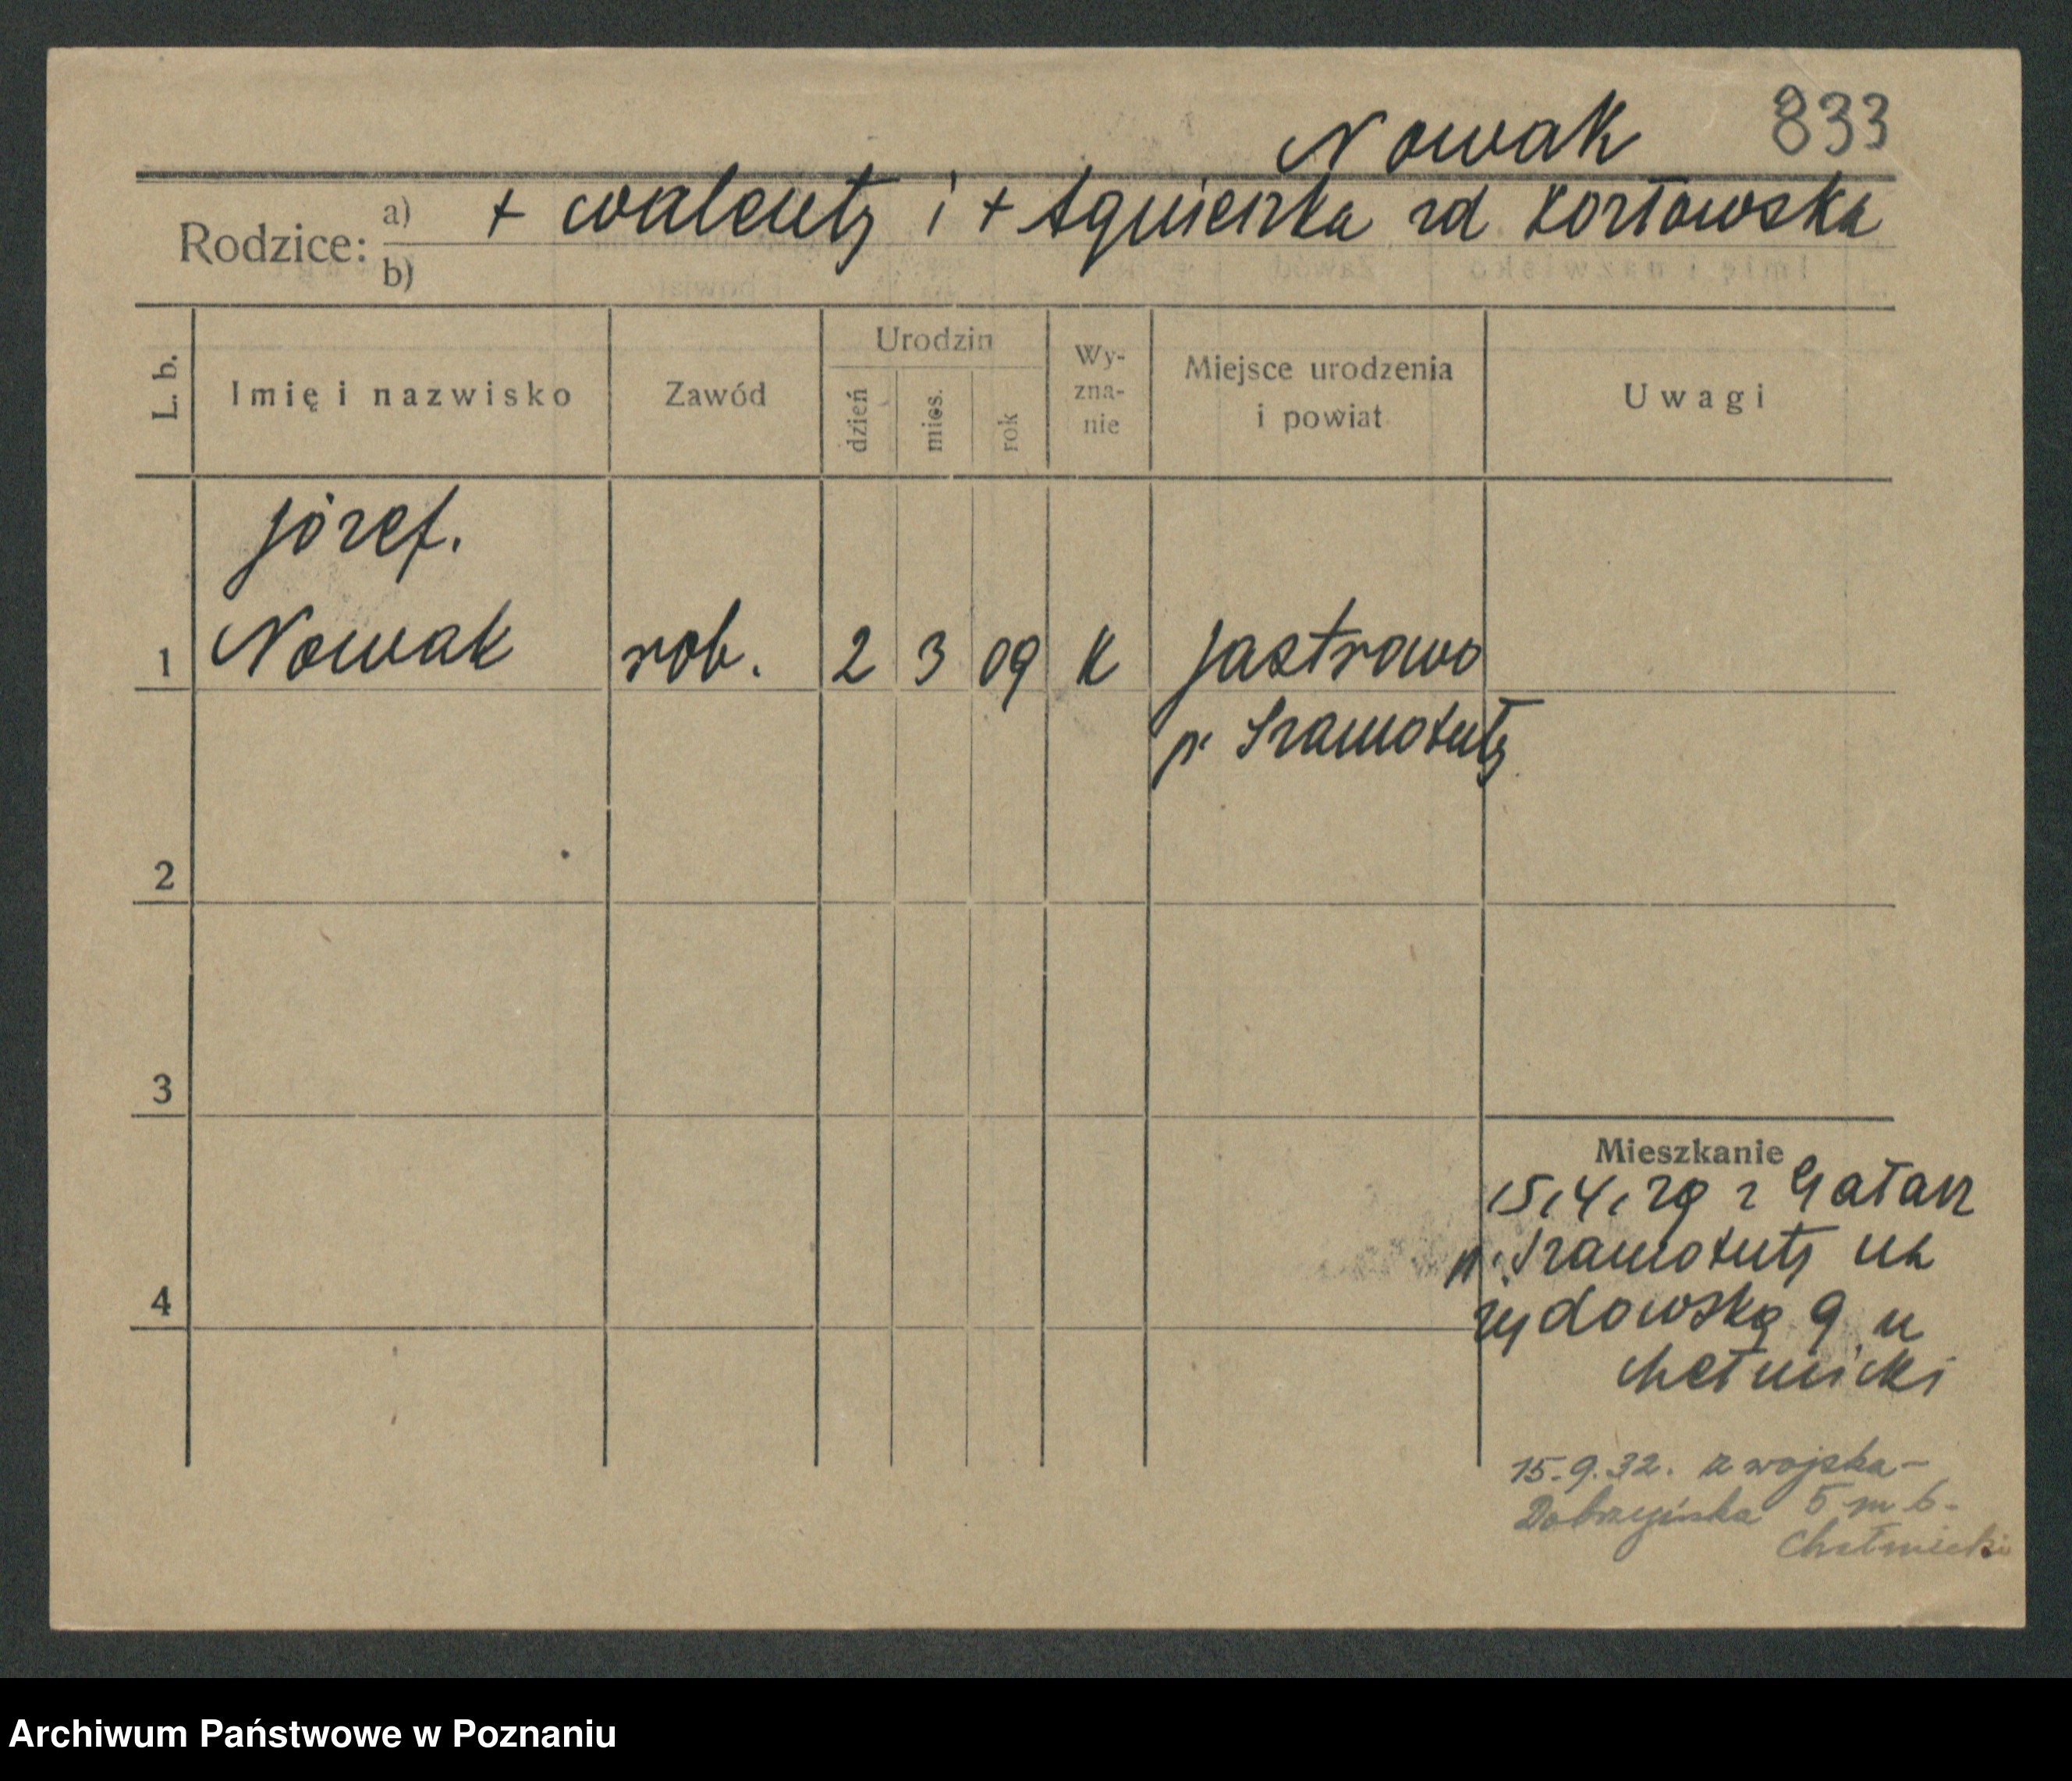 Nowak 833
Rodzice: a) + Walenty i + Agnieszka zd Kozłowska
b)
L. b. Imię i nazwisko Zawód Urodzin dzień mies. rok Wy-zna-nie Miejsce urodzenia i powiat Uwagi
Józef.
1 Nowak rob. 2 3 09 K Jastrowo
p. Szamotuły
2
3
Mieszkanie
15.4.29 z Gałazz
p. Szamotuły na
4
żydowską 9 u
Chełmicki
15.9.32. z wojska-
Dobrzyńska 5 m 6-
Chełmicki
Archiwum Państwowe w Poznaniu